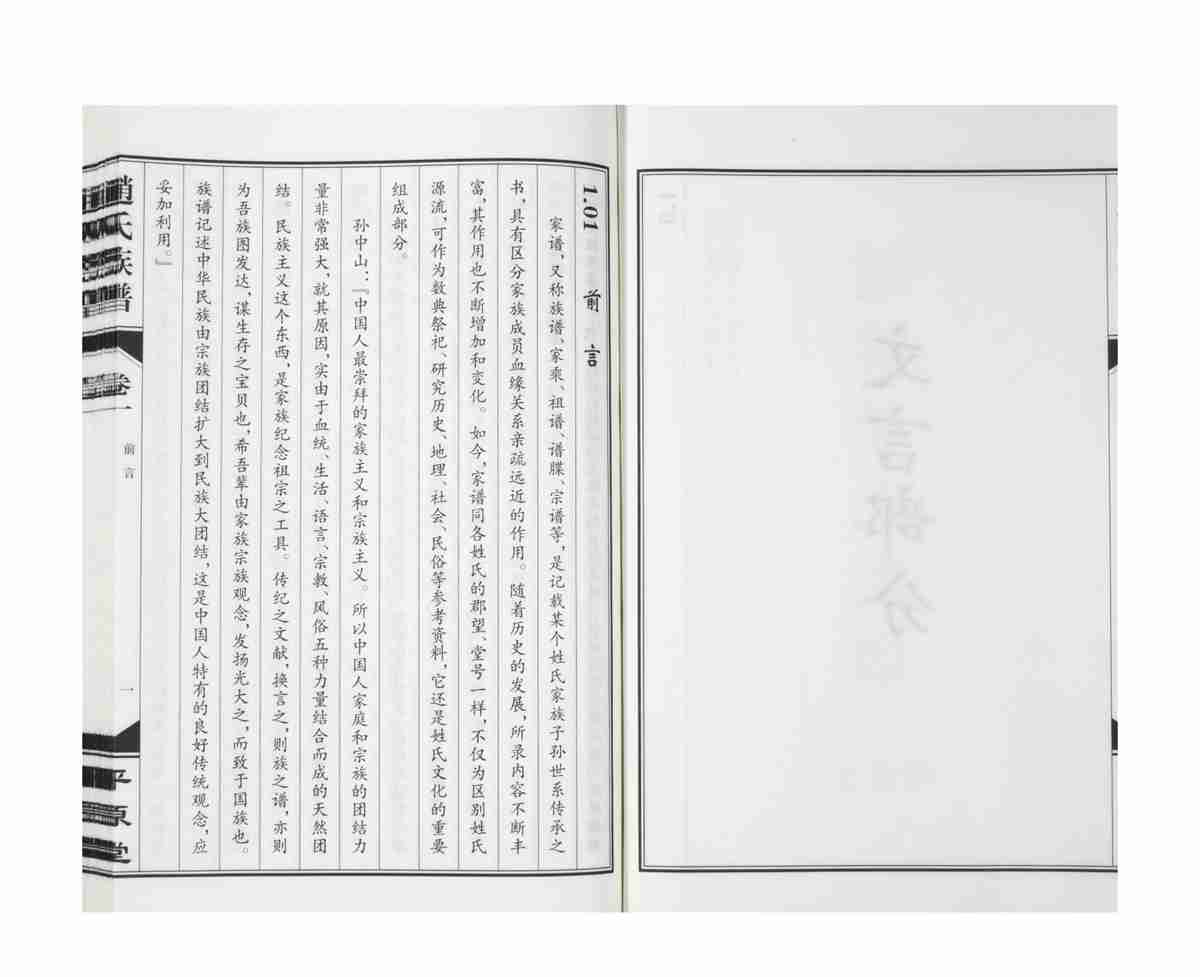 1.01 前言
家谱，又称族谱、家乘、祖谱、谱牒、宗谱等，是记载某个姓氏家族子孙世系传承之
书，具有区分家族成员血缘关系亲疏远近的作用。随着历史的发展，所录内容不断丰
富，其作用也不断增加和变化。如今，家谱同各姓氏的郡望、堂号一样，不仅为区别姓氏
源流，可作为数典祭祀、研究历史、地理、社会、民俗等参考资料，它还是姓氏文化的重要
组成部分。
孙中山：『中国人最崇拜的家族主义和宗族主义。所以中国人家庭和宗族的团结力
量非常强大，就其原因，实由于血统、生活、语言、宗教、风俗五种力量结合而成的天然团
结。民族主义这个东西，是家族纪念祖宗之工具。传纪之文献，换言之，则族之谱，亦则
为吾族图发达，谋生存之宝贝也，希吾辈由家族宗族观念，发扬光大之，而致于国族也。
族谱记述中华民族由宗族团结扩大到民族大团结，这是中国人特有的良好传统观念，应
妥加利用。』
赵氏族谱
卷一
前言
一
平原堂
文言部分